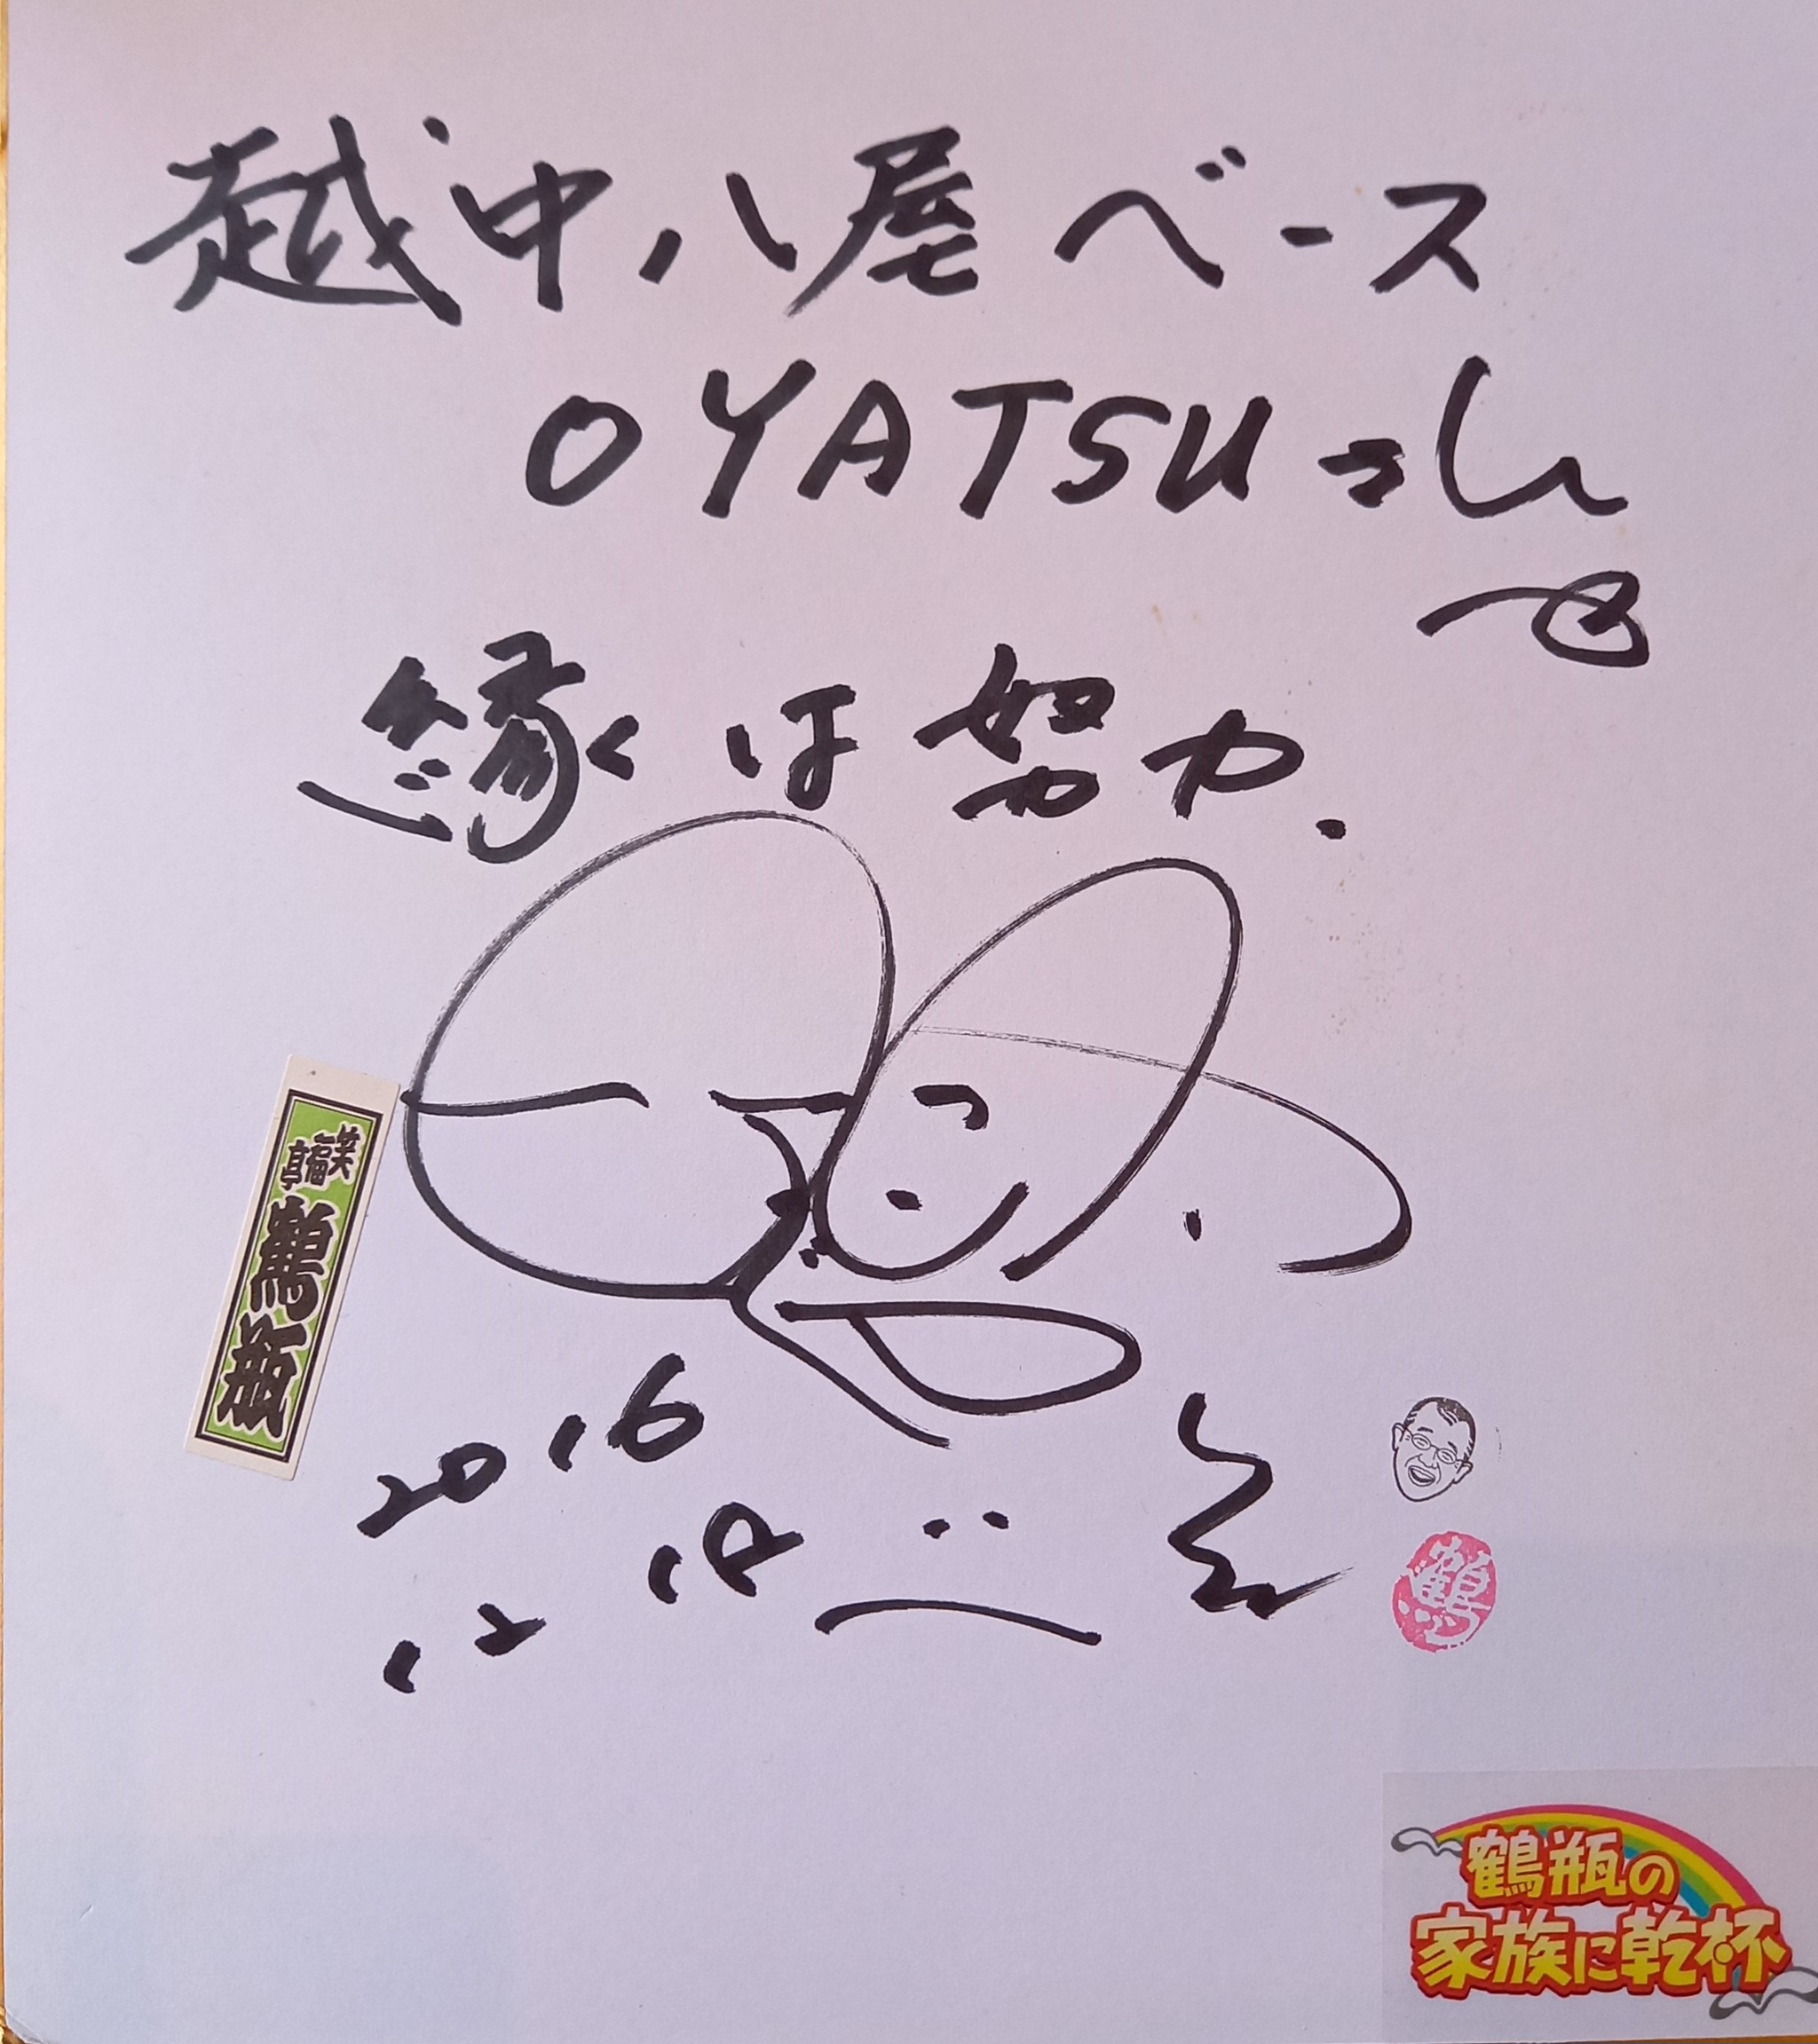 越中八尾ベース
OYATSUさん
江
縁は努力.
笑福亭
鶴瓶
2016
12 17
鶴
鶴瓶の
家族に乾杯